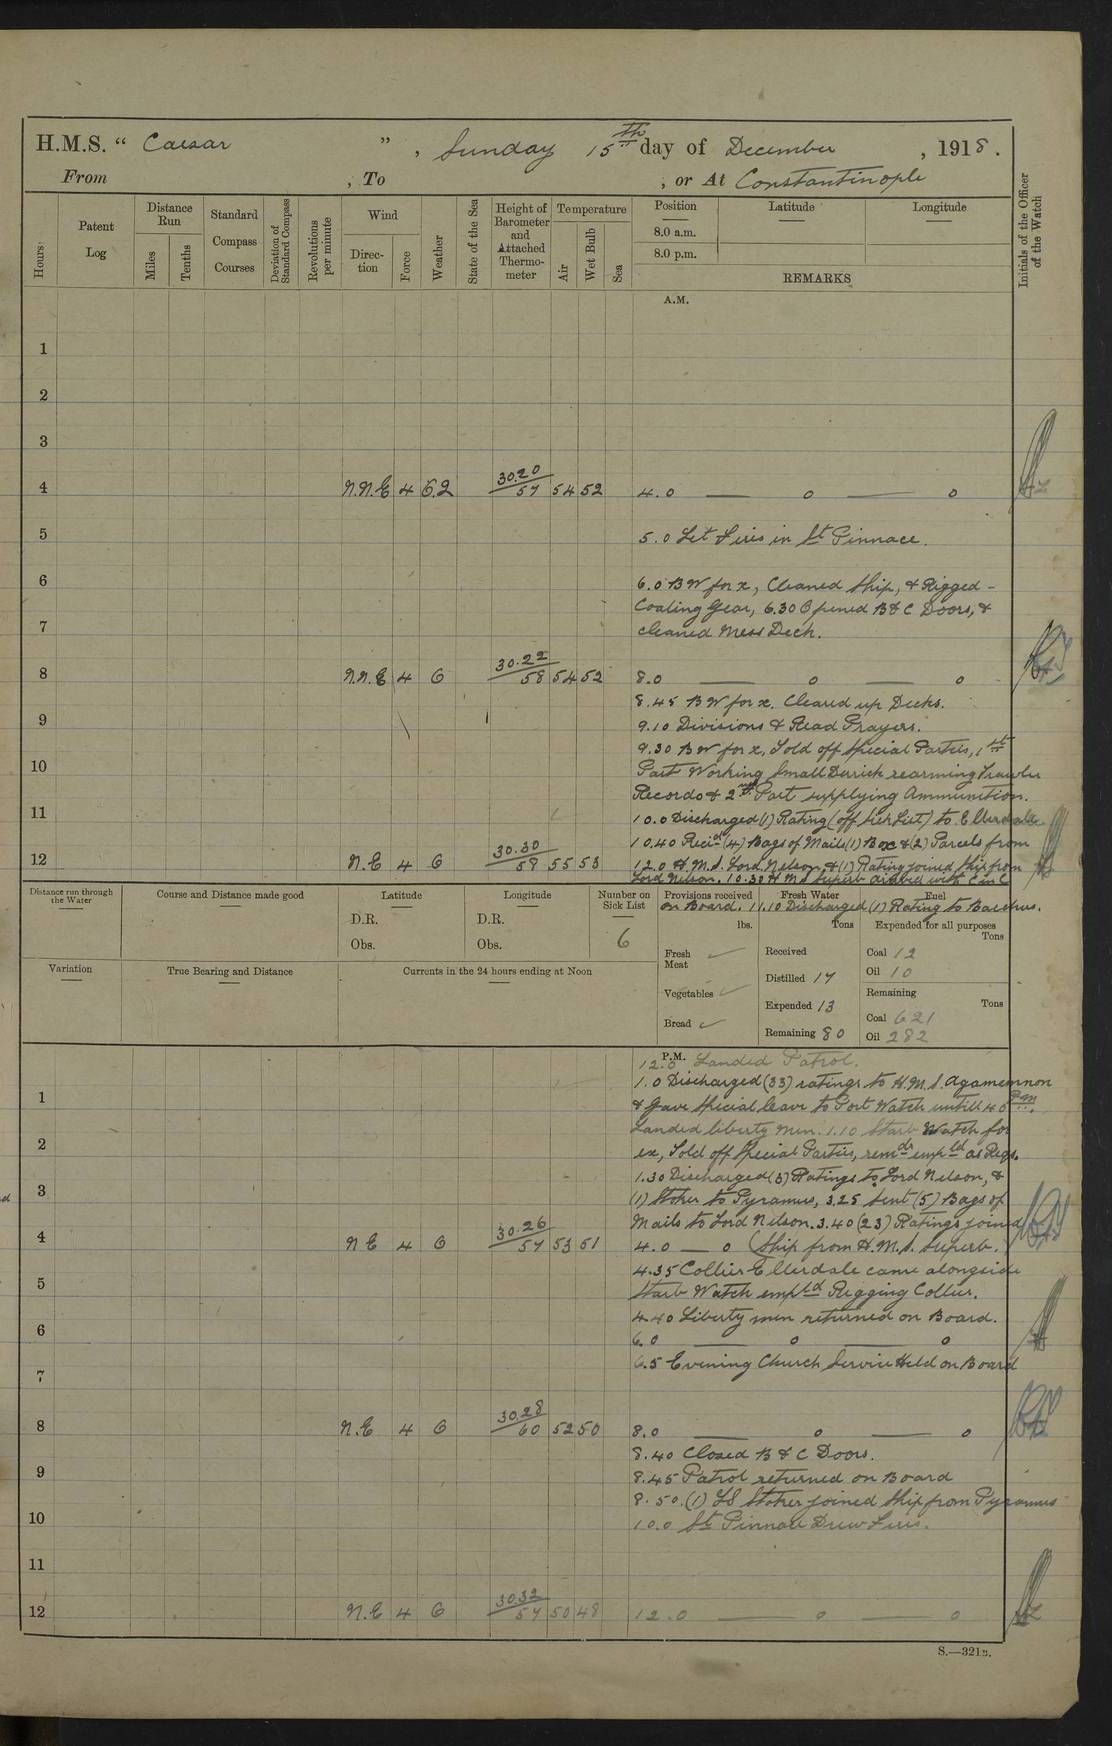 H.M.S. “ Caesar ” , Sunday 15th day of December , 1918 .
From , To , or At Constantinople
Hours
Patent Log
Distance Run
Miles
Tenths
Standard Compass Courses
Deviation of Standard Compass
Revolutions per minute
Wind
Direc-tion
Force
Weather
State of the Sea
Height of Barometer and Attached Thermo-meter
Temperature
Air
Wet Bulb
Sea
Position
8.0 a.m.
8.0 p.m.
Latitude
Longitude
REMARKS
Initials of the Officer of the Watch
A.M.
1
2
3
4 N.N.E 4 30.20 57 54 52 4.0 — o — o
5 5.0 Let Fires in St Pinnace.
6 6.0 BW for x, Cleaned Ship, & Rigged -
Coaling Gear, 6.30 Opened B & C Doors, &
7 cleaned Mess Deck.
8 N.N.E 4 6 30.22 58 54 52 8.0 — o — o
8.45 BW for x. Cleared up Decks.
9 9.10 Divisions & Read Prayers.
9.30 BW for x, Told off Special Parties, 1st
10 Part Working Small Derrick rearming Trawler
Records & 2nd Part supplying Ammunition.
11 10.0 Discharged (1) Rating (off Sick List) to Ellerdale
10.40 Recid (4) Bags of Mails (1) Box & (2) Parcels from
12 N.E 4 6 30.30 58 55 53 12.0 H.M.S. Lord Nelson, & (1) Rating joined Ship from
Lord Nelson. 10.30 H M S Superb arrived with C in C
on Board. 11.10 Discharged (1) Rating to Bacchus.
Distance run through the Water
Course and Distance made good
Latitude
D.R.
Obs.
Longitude
D.R.
Obs.
Number on Sick List
6
Provisions received
lbs.
Fresh Meat ✓
Vegetables ✓
Bread ✓
Fresh Water
Tons
Received
Distilled 17
Expended 13
Remaining 80
Fuel
Expended for all purposes
Tons
Coal 12
Oil 10
Remaining
Tons
Coal 621
Oil 282
Variation
True Bearing and Distance
Currents in the 24 hours ending at Noon
P.M.
12.0 Landed Patrol.
1.0 Discharged (33) ratings to H.M.S. Agamemnon
1 & Gave Special leave to Port Watch untill 4.0 PM.
Landed liberty men. 1.10 Starb Watch for
2 ex, Told off Special Parties, remdr empld as Reqs.
1.30 Discharged (3) Ratings to Lord Nelson, &
3 (1) Stoker to Pyramus, 3.25 Sent (5) Bags of
Mails to Lord Nelson. 3.40 (23) Ratings joined
4 N E 4 6 30.26 57 53 51 4.0 — o (Ship from H.M.S. Superb.
4.35 Collier Ellerdale came alongside
5 Starb Watch empld Rigging Collier.
4.40 Liberty men returned on Board.
6 6.0 — o — o
6.5 Evening Church Service Held on Board
7
8 N.E 4 6 30.28 60 52 50 8.0 — o — o
8.40 Closed B & C Doors.
9 8.45 Patrol returned on Board
8.50. (1) LS Stoker joined Ship from Pyramus
10 10.0 St Pinnace Drew Fires.
11
12 N.E 4 6 30.32 57 50 48 12.0 — o — o
S.—321B.